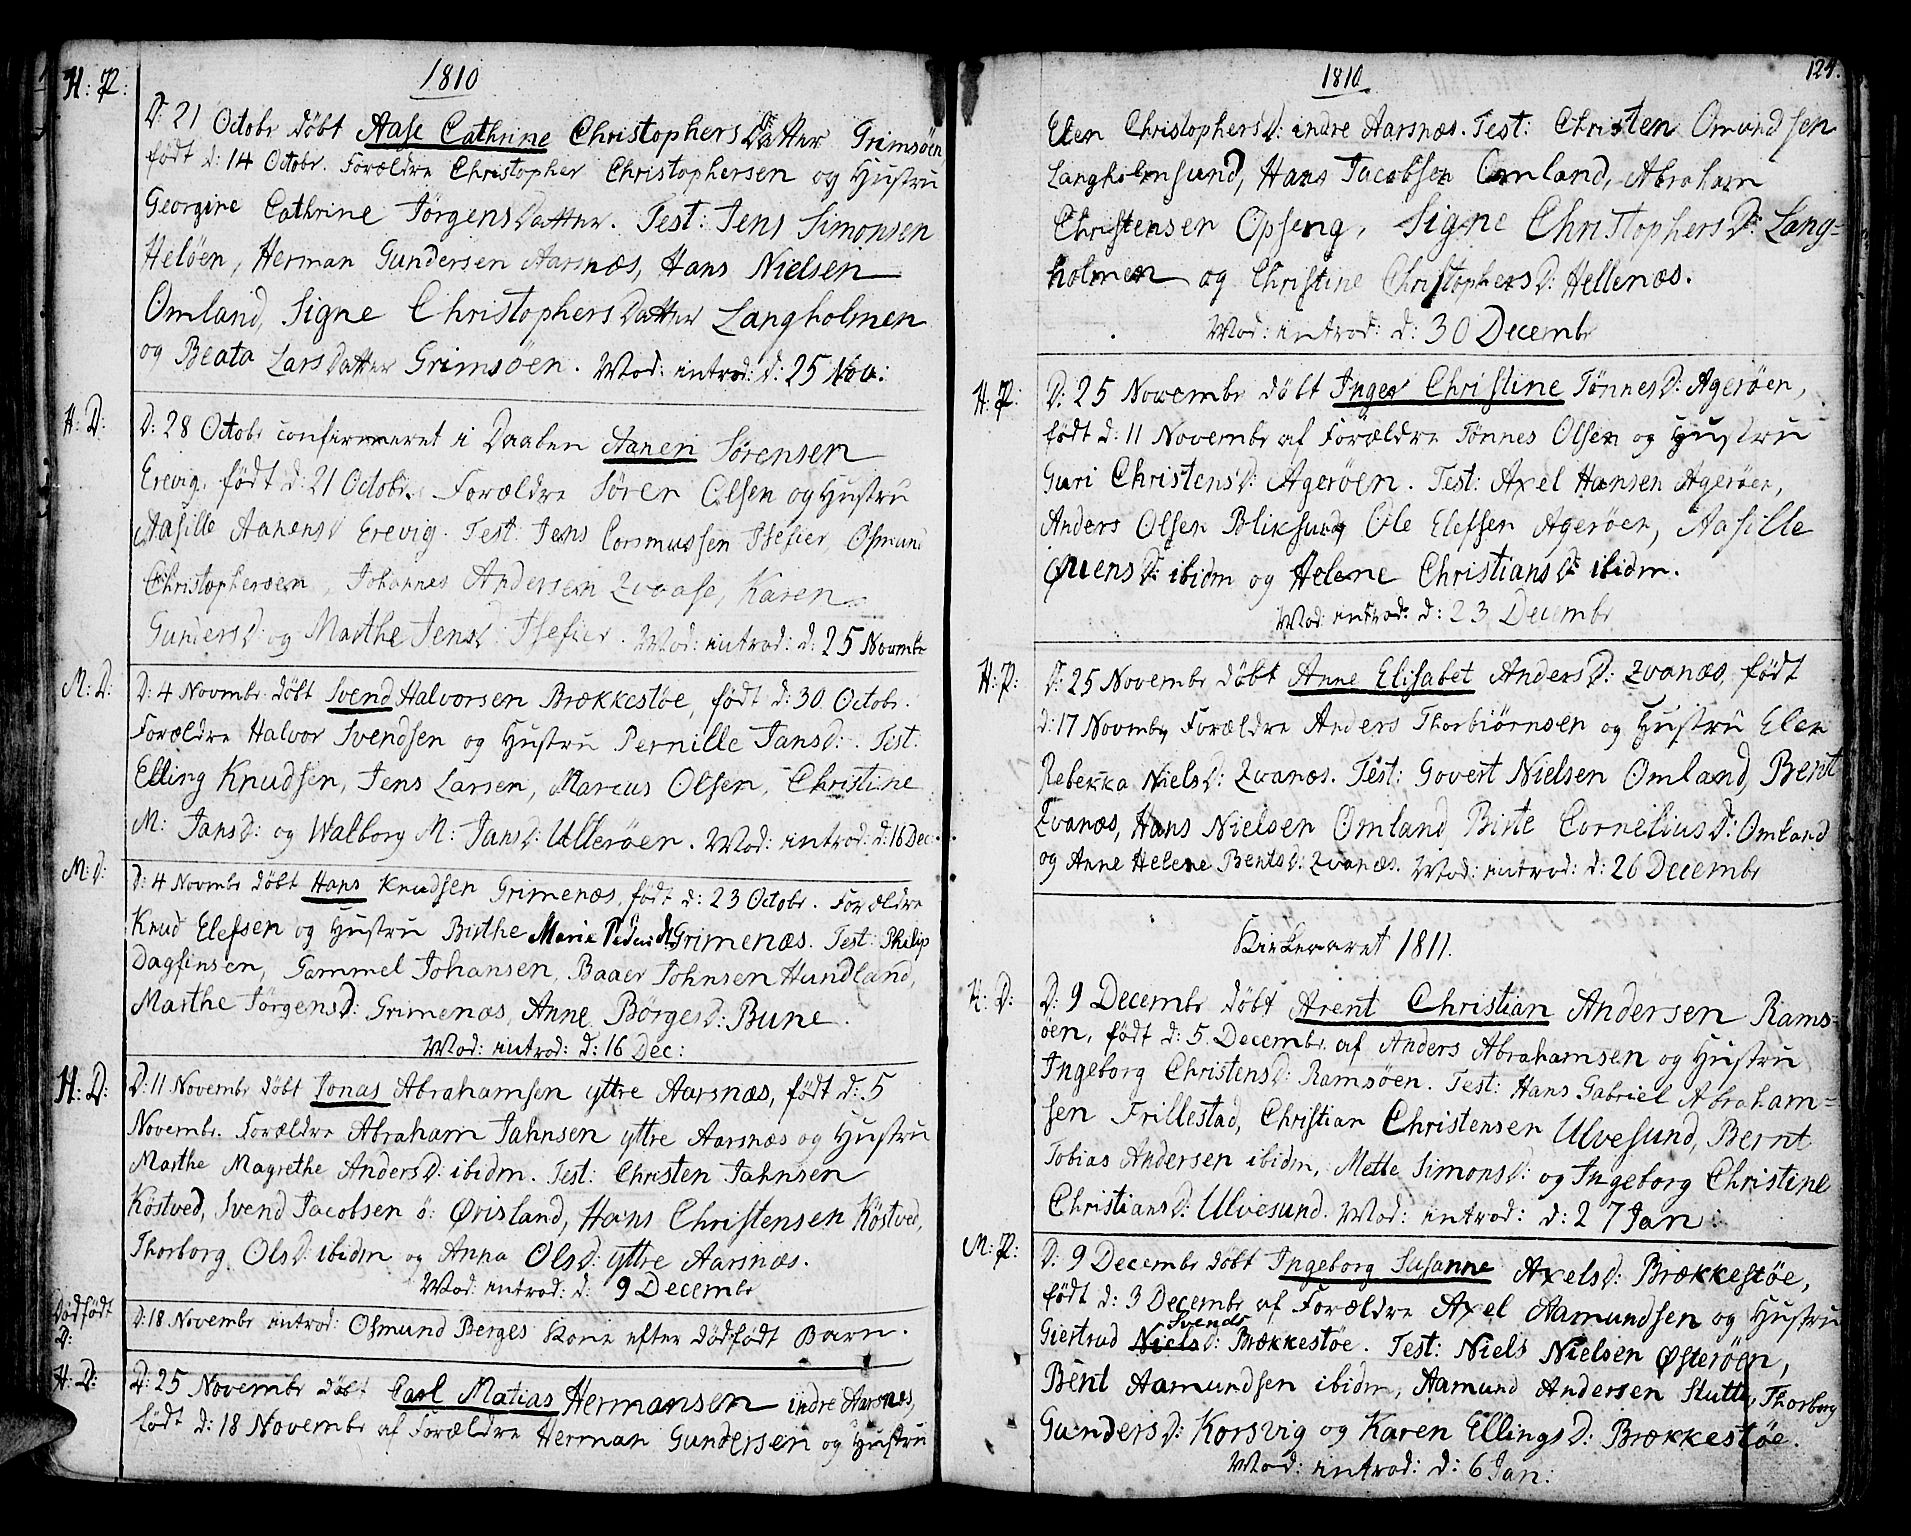 H: P:
1810
D: 21 Octobr døbt Aase Cathrine ChristophersDatter Grimsøen
født d: 14 Octobr. Forældre Christopher Christophersen og Hustru
Georgine Cathrine JørgensDatter. Test: Jens Simonsen
Heløen, Herman Gundersen Aarsnæs, Hans Nielsen
Omland, Signe ChristophersDatter Langholmen
og Beata LarsDatter Grimsøen. Mod: introd: d: 25 Nov:
H: D:
D: 28 Octobr confirmeret i Daaben Aanen Sørensen
Erevig, født d: 21 Octobr. Forældre Søren Olsen og Hustru
Aasille Aanensd Erevig. Test: Jens Corsmussen Isefier, Osmund
Christophersen, Johannes Andersen Zvaase, Karen
GundersD: og Marthe JensD: Isefier. Mod: introd: d: 25 Novmbr
M: D:
D: 4 Novmbr: døbt Svend Halvorsen Brækkestøe, født d: 30 Octobr.
Forældre Halvor Svendsen og Hustru Pernille JansD:. Test:
Elling Knudsen, Jens Larsen, Marcus Olsen, Christine
M: JansD: og Walborg M: JansD: Ullerøen. Mod: introd: d: 16 Dec:
M: D:
D: 4 Novmbr døbt Hans Knudsen Grimenæs, født d: 23 Octobr. Forældre
Knud Elefsen og Hustru Birthe Marie Grimenæs. Test: Philip
Dagfinsen, Gammel Johansen, Baaer Johnsen Hundland,
Marthe JørgensD: Grimenæs, Anne BørgesD: Bune.
Mod: introd: d: 16 Dec:
H: D:
D: 11 Novembr døbt Jonas Abrahamsen yttre Aarsnæs, født d: 5
Novembr. Forældre Abraham Jahnsen yttre Aarsnæs og Hustru
Marthe Magrethe AndersD: ibidm. Test: Christen Jahnsen
Köstved, Svend Jacobsen ö: Ørisland, Hans Christensen Köstved,
Thorborg OlsD: ibidm og Anna OlsD: yttre Aarsnæs.
Mod: introd: d: 9 Decembr
Dødfødt
D:
D: 18 Novembr introd: Osmund Berges Kone efter dødfødt Barn.
H: D:
D: 25 Novembr døbt Carl Matias Hermansen indre Aarsnes,
født d: 18 Novembr af Forældre Herman Gundersen og Hustru
1810
124.
Elen ChristophersD: indre Aarsnæs. Test: Christen Omundsen
Langholmsund, Hans Jacobsen Omland, Abraham
Christensen Opseng, Signe ChristophersD: Lang=
holmen og Christine ChristophersD: Hellenæs.
Mod: introd: d: 30 Decembr
H: P:
D: 25 Novembr døbt Inger Christine TønnesD: Agerøen,
født d: 11 Novembr af Forældre Tønnes Olsen og Hustru
Guri ChristensD: Agerøen. Test: Axel Hansen Agerøen,
Anders Olsen Bliksund, Ole Elefsen Agerøen, Aasille
ØuensD: ibidm og Helene ChristiansD: ibidm.
Mod: introd: d: 23 Decembr
H: P:
D: 25 Novembr døbt Anne Elisabet AndersD: Zvanæs, født
d: 17 Novembr, Forældre Anders Thorbiørnsen og Hustru Elen
Rebekka NielsD: Zvanæs. Test: Govert Nielsen Omland, Bent
Zvanæs, Hans Nielsen Omland, Birte CorneliusD: Omland
og Anne Helene BentsD: Zvanæs. Mod: introd: d: 26 Decembr
Kirkeaaret 1811.
H: D:
D: 9 Decembr døbt Arent Christian Andersen Rams=
öen, født d: 5 Decembr af Anders Abrahamsen og Hustru
Ingeborg ChristensD: Ramsøen. Test: Hans Gabriel Abraham=
sen Frillestad, Christian Christensen Ulvesund, Bernt
Tobias Andersen ibidm, Mette SimonsD: og Ingeborg Christine
ChristiansD: Ulvesund. Mod: introd: d: 27 Jan:
M: P:
D: 9 Decembr døbt Ingeborg Susanne AxelsD: Brækkestøe,
født d: 3 Decembr af Forældre Axel Aamundsen og Hustru
Svends
Giertrud NielsD: Brækkestøe. Test: Niels Nielsen Østerøen,
Bent Aamundsen ibidm, Aamund Andersen Slutte, Thorborg
GundersD: Korsvig og Karen EllingsD: Brækkestøe.
Mod: introd: d: 6 Jan: